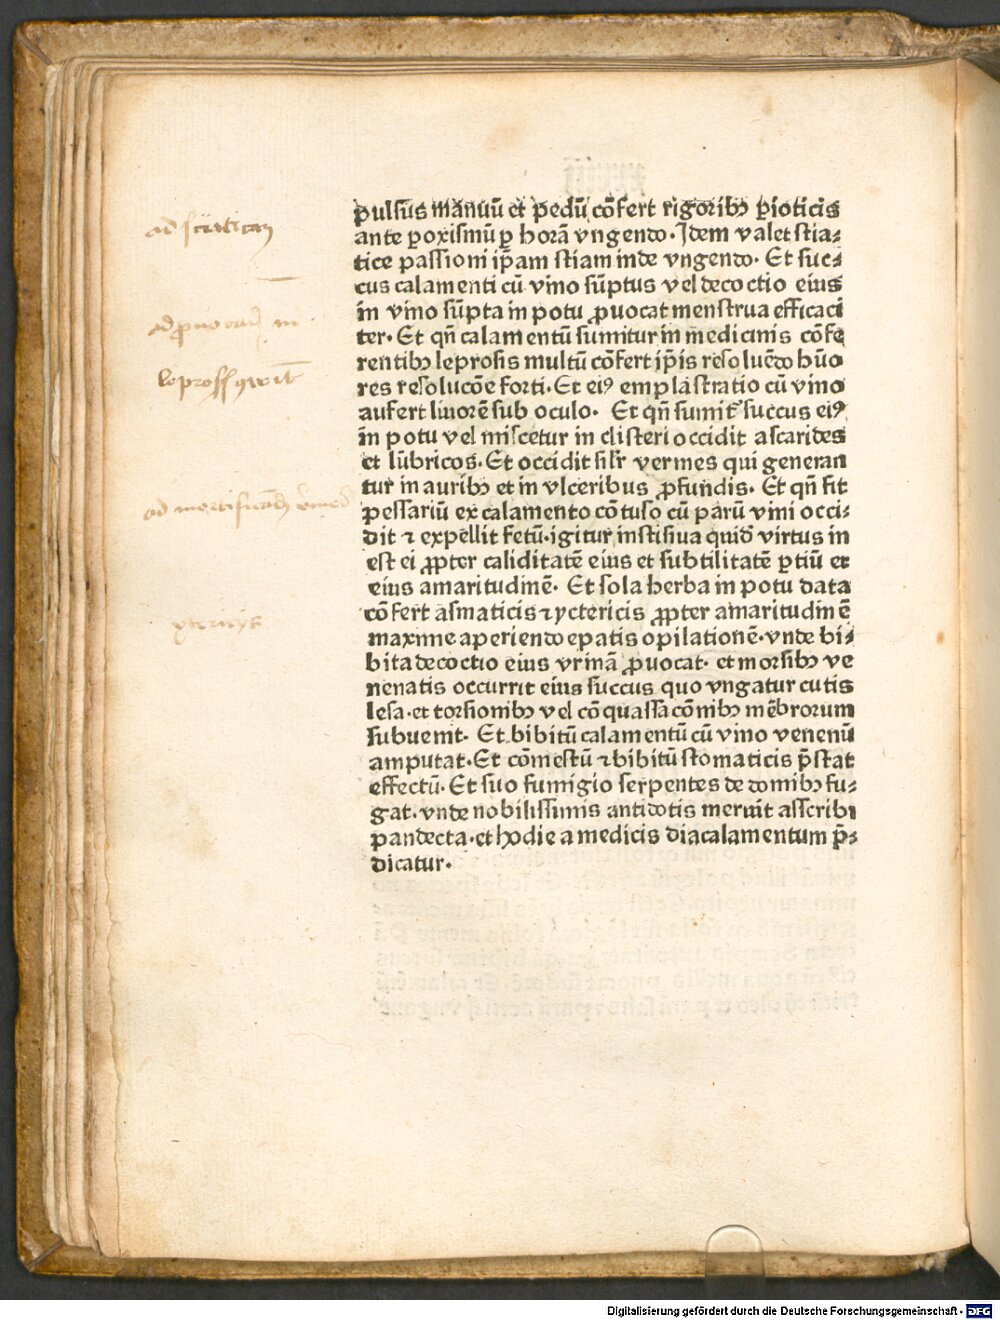 pulsus manuū et pedū cōfert rigoribꝫ ꝑioticis
ante ꝑoxismū ꝑ horā vngendo. Idem valet stia⸗
tice passioni ip̄am stiam inde vngendo. Et suc⸗
cus calamenti cū vino sūptus vel decoctio eius
in vino sūpta in potu ꝓuocat menstrua efficaci
ter. Et qn̄ calamentū sumitur in medicinis cōfe
rentibꝫ leprosis multū cōfert ip̄is resoluēdo hūo
res resolucōe forti. Et eiꝰ emplastratio cū vino
aufert liuorē sub oculo. Et qn̄ sumit᷑ succus eiꝰ
in potu vel miscetur in clisteri occidit ascarides
et lūbricos. Et occidit silr̄ vermes qui generan
tur in auribꝫ et in vlceribus ꝓfundis. Et qn̄ fit
pessariū ex calamento cōtuso cū parū vini occi⸗
dit ⁊ expellit fetū. igitur instisiua quid̄ virtus in
est ei ꝓpter caliditatē eius et subtilitatē ꝑtiū et
eius amaritudinē. Et sola herba in potu data
cōfert asmaticis ⁊ yctericis ꝓpter amaritudinē
maxime aperiendo epatis opilationē. vnde bi⸗
bita decoctio eius vrinā ꝓuocat. et morsibꝫ ve
nenatis occurrit eius succus quo vngatur cutis
lesa. et torsionibꝫ vel cōquassacōnibꝫ mēbrorum
subuenit. Et bibitū calamentū cū vino venenū
amputat. Et cōmestū ⁊ bibitū stomaticis p̄stat
effectū. Et suo fumigio serpentes de domibꝫ fu⸗
gat. vnde nobilissimis antidotis meruit asscribi
pandecta. et hodie a medicis diacalamentum p̄⸗
dicatur.
ad sciaticam
leprosis
Digitalisierung gefördert durch die Deutsche Forschungsgemeinschaft - DFG